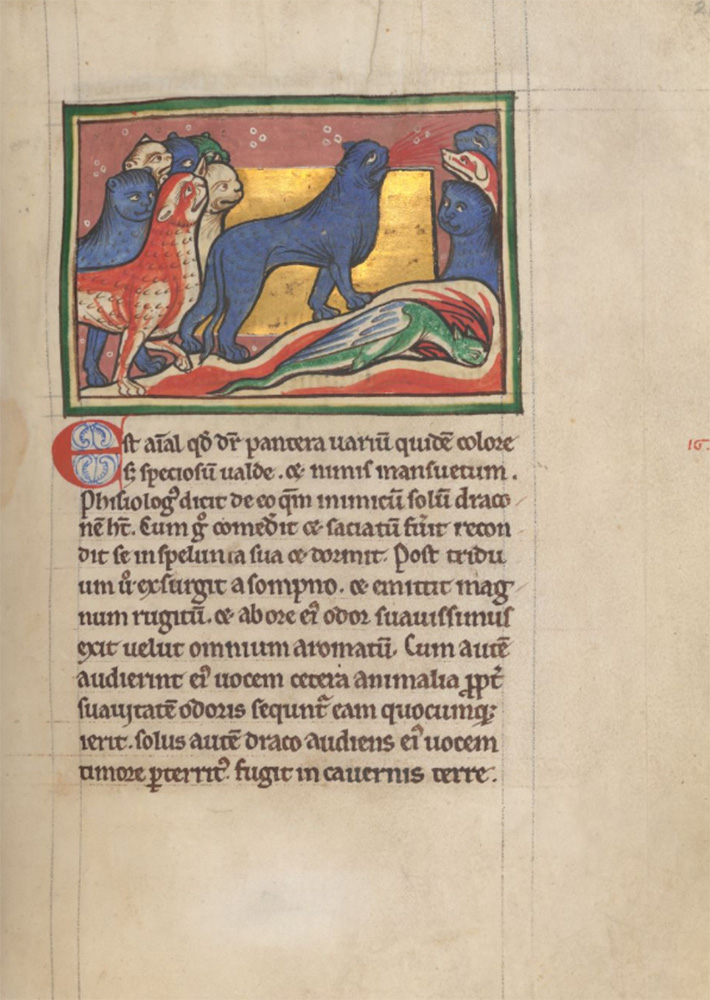 2
Est aĩal qḋ dr̃ pantera uariũ quidẽ colore
sꝫ speciosũ ualde. ⁊ nimis mansuetum.
Phisiologꝰ dicit de eo qm̃ inimicũ solũ draco
nẽ ht̃. Cum gͦ comed̾it ⁊ saciatũ fũit recon
dit se in spelunca sua ⁊ dormit. Post tridu
um ů exsurgit a sompno. ⁊ emittit mag
num rugitũ. ⁊ ab ore eiꝰ odor suauissimus
exit uelut omnium aromatũ. Cum autẽ
audierint eiꝰ uocem cetera animalia ꝓpt̃
suauitatẽ odoris sequnt᷑ eam quocumqꝫ
ierit. solus autẽ draco audiens eiꝰ uocem
timore ꝑterritꝰ fugit in cauernis terre.
16.